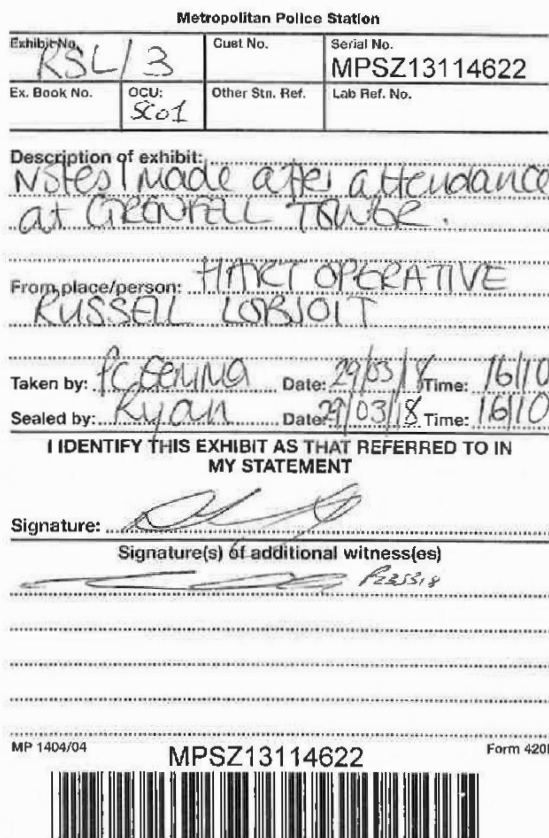 Metropolitan Police Station
Exhibit No. RSL/3
Cust No.
Serial No. MPSZ13114622
Ex. Book No.
OCU: SCO1
Other Stn. Ref.
Lab Ref. No.
Description of exhibit:
Notes I made after attendance
at GRENFELL TOWER.
From place/person: HART OPERATIVE
RUSSELL LOBJOIT
Taken by: PC Date: 29/03/18 Time: 1610
Sealed by: Ryan Date: 29/03/18 Time: 1610
I IDENTIFY THIS EXHIBIT AS THAT REFERRED TO IN
MY STATEMENT
Signature:
Signature(s) of additional witness(es)
MP 1404/04
MPSZ13114622
Form 420